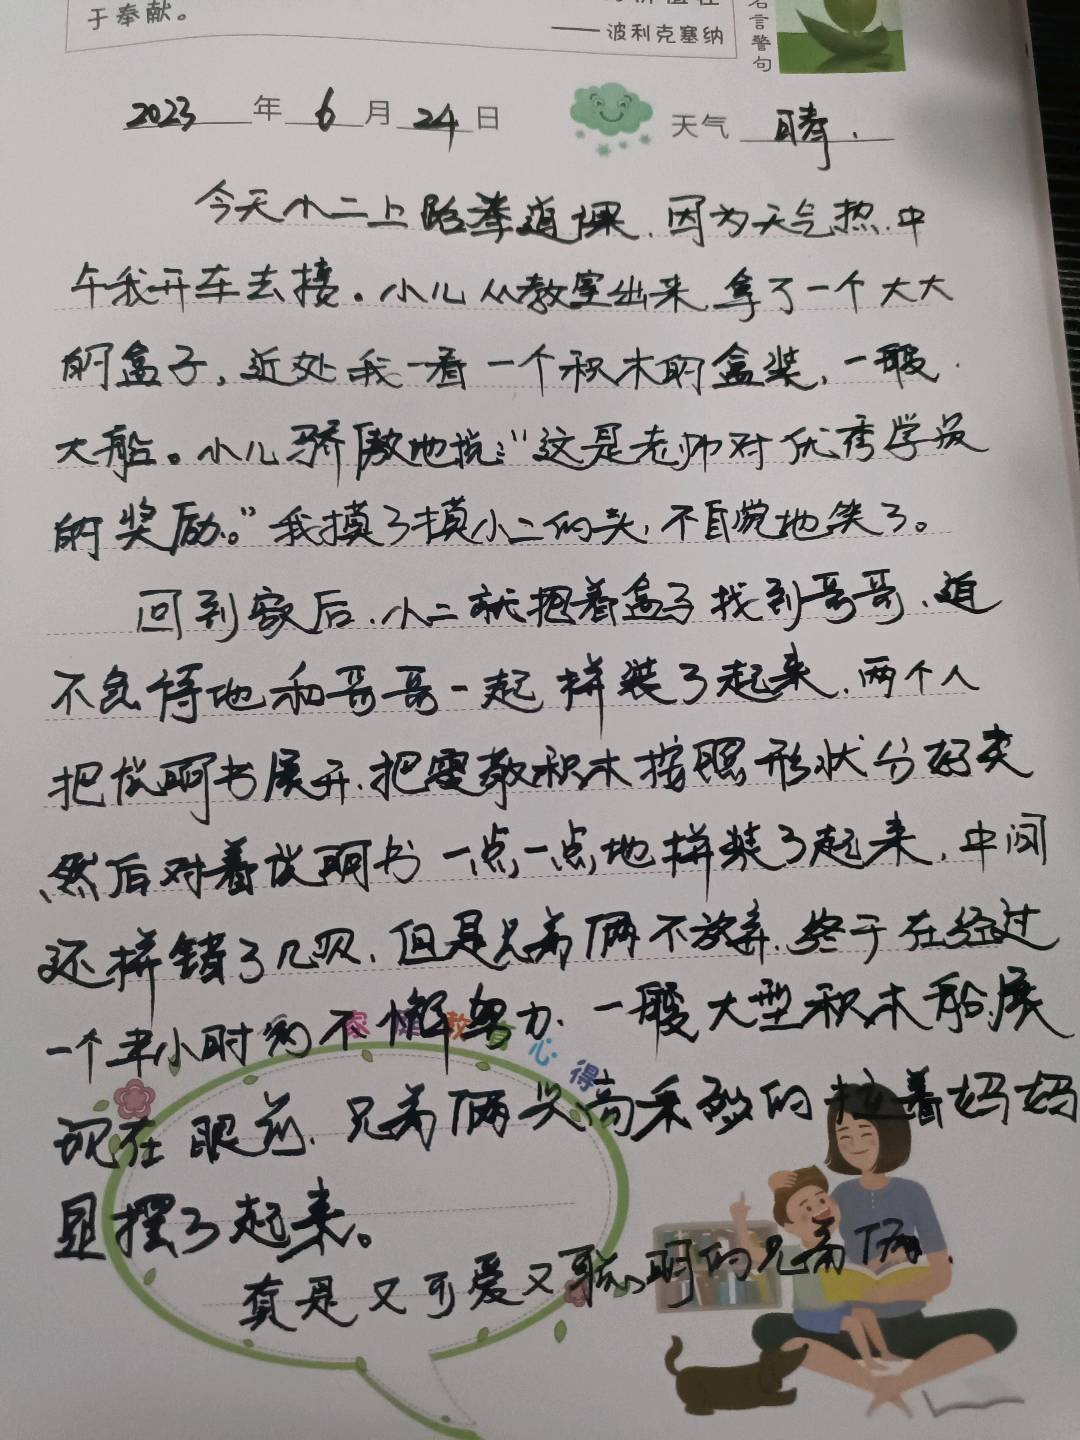 于奉献。
——波利克塞纳
名言警句
2023年6月24日 天气 晴.
今天小二上跆拳道课,因为天气热,中
午我开车去接。小儿从教室出来,拿了一个大大
的盒子,近处我一看一个积木的盒装,一艘
大船。小儿骄傲地说:“这是老师对优秀学员
的奖励。”我摸了摸小二的头,不自觉地笑了。
回到家后,小二就抱着盒子找到哥哥,迫
不急待地和哥哥一起拼装了起来,两个人
把说明书展开,把零散积木按照形状分好类
,然后对着说明书一点一点地拼装了起来,中间
还拼错了几次,但是兄弟俩不放弃,终于在经过
一个半小时的不懈努力,一艘大型积木船展
家庭教育心得
现在眼前,兄弟俩兴高采烈的拉着妈妈
显摆了起来。
真是又可爱又聪明的兄弟俩.